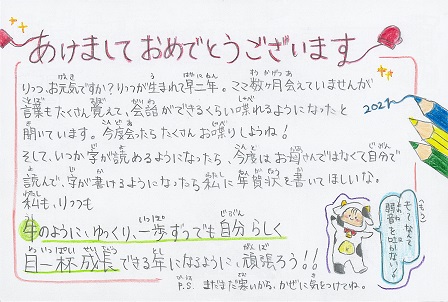 あけましておめでとうございます
りっつ、お元気ですか？りっつが生まれて早二年。ここ数ヶ月会えていませんが
言葉もたくさん覚えて、会話ができるくらい喋れるようになったと
聞いています。今度会ったらたくさんお喋りしようね！
2021
そして、いつか字が読めるようになったら、今度はお母さんではなくて自分で
読んで、字が書けるようになったら私に年賀状を書いてほしいな。
私も、りっつも
牛のように、ゆっくり、一歩ずつでも自分らしく
目一杯成長できる年になるように、頑張ろう！！
P.S. まだまだ寒いから、かぜに気をつけてね。
もぅ〜なんて
弱音を吐かない！